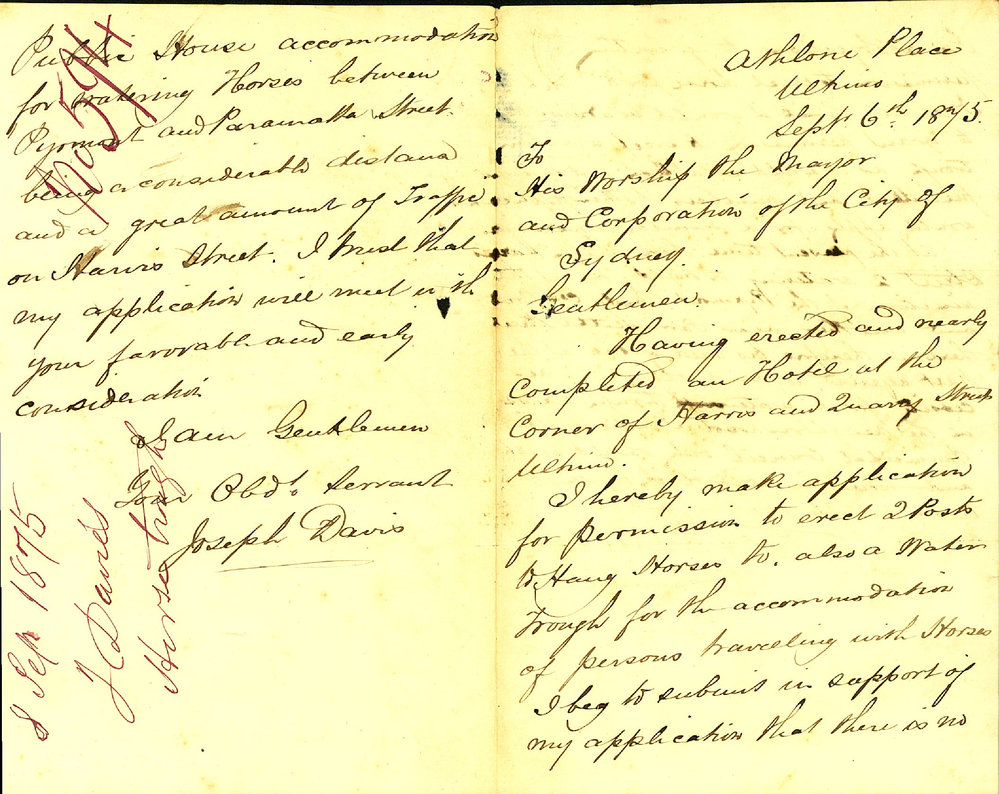 Athlone Place
Ultimo
Sept 6th 1875.
To
His Worship the Mayor
and Corporation of the City of
Sydney.
Gentlemen.
Having erected and nearly
completed an Hotel at the
Corner of Harris and Quarry Street
Ultimo.
I hereby make application
for permission to erect 2 Posts
to Hang Horses to, also a Water
Trough for the accommodation
of persons travelling with Horses
I beg to submit in support of
my application that there is no
Public House accommodation
for watering Horses between
Pyrmont and Paramatta Street
being a considerable distance
and a great amount of Traffic
on Harris Street. I trust that
my application will meet with
your favorable and early
consideration
I am Gentlemen
Your Obdt Servant
Joseph Davis
No 594
8 Sep 1875
J Davies
Horse trough